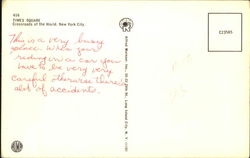 TIMES SQUARE
Crossroads of the World, New York City.
This is a very busy
place. When your
riding in a car you
have to be very very
careful otherwise there's
alot of accidents.
C23585